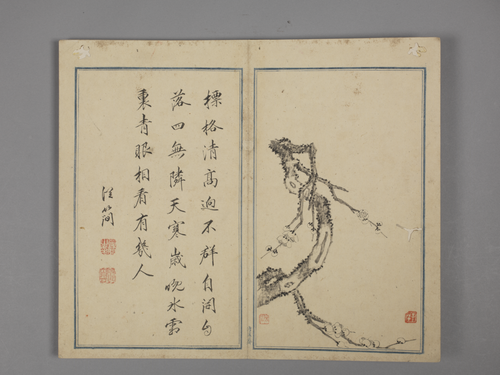 標格清高迥不群自開自
落四無隣天寒歲晚氷雪
裏青眼相看有幾人